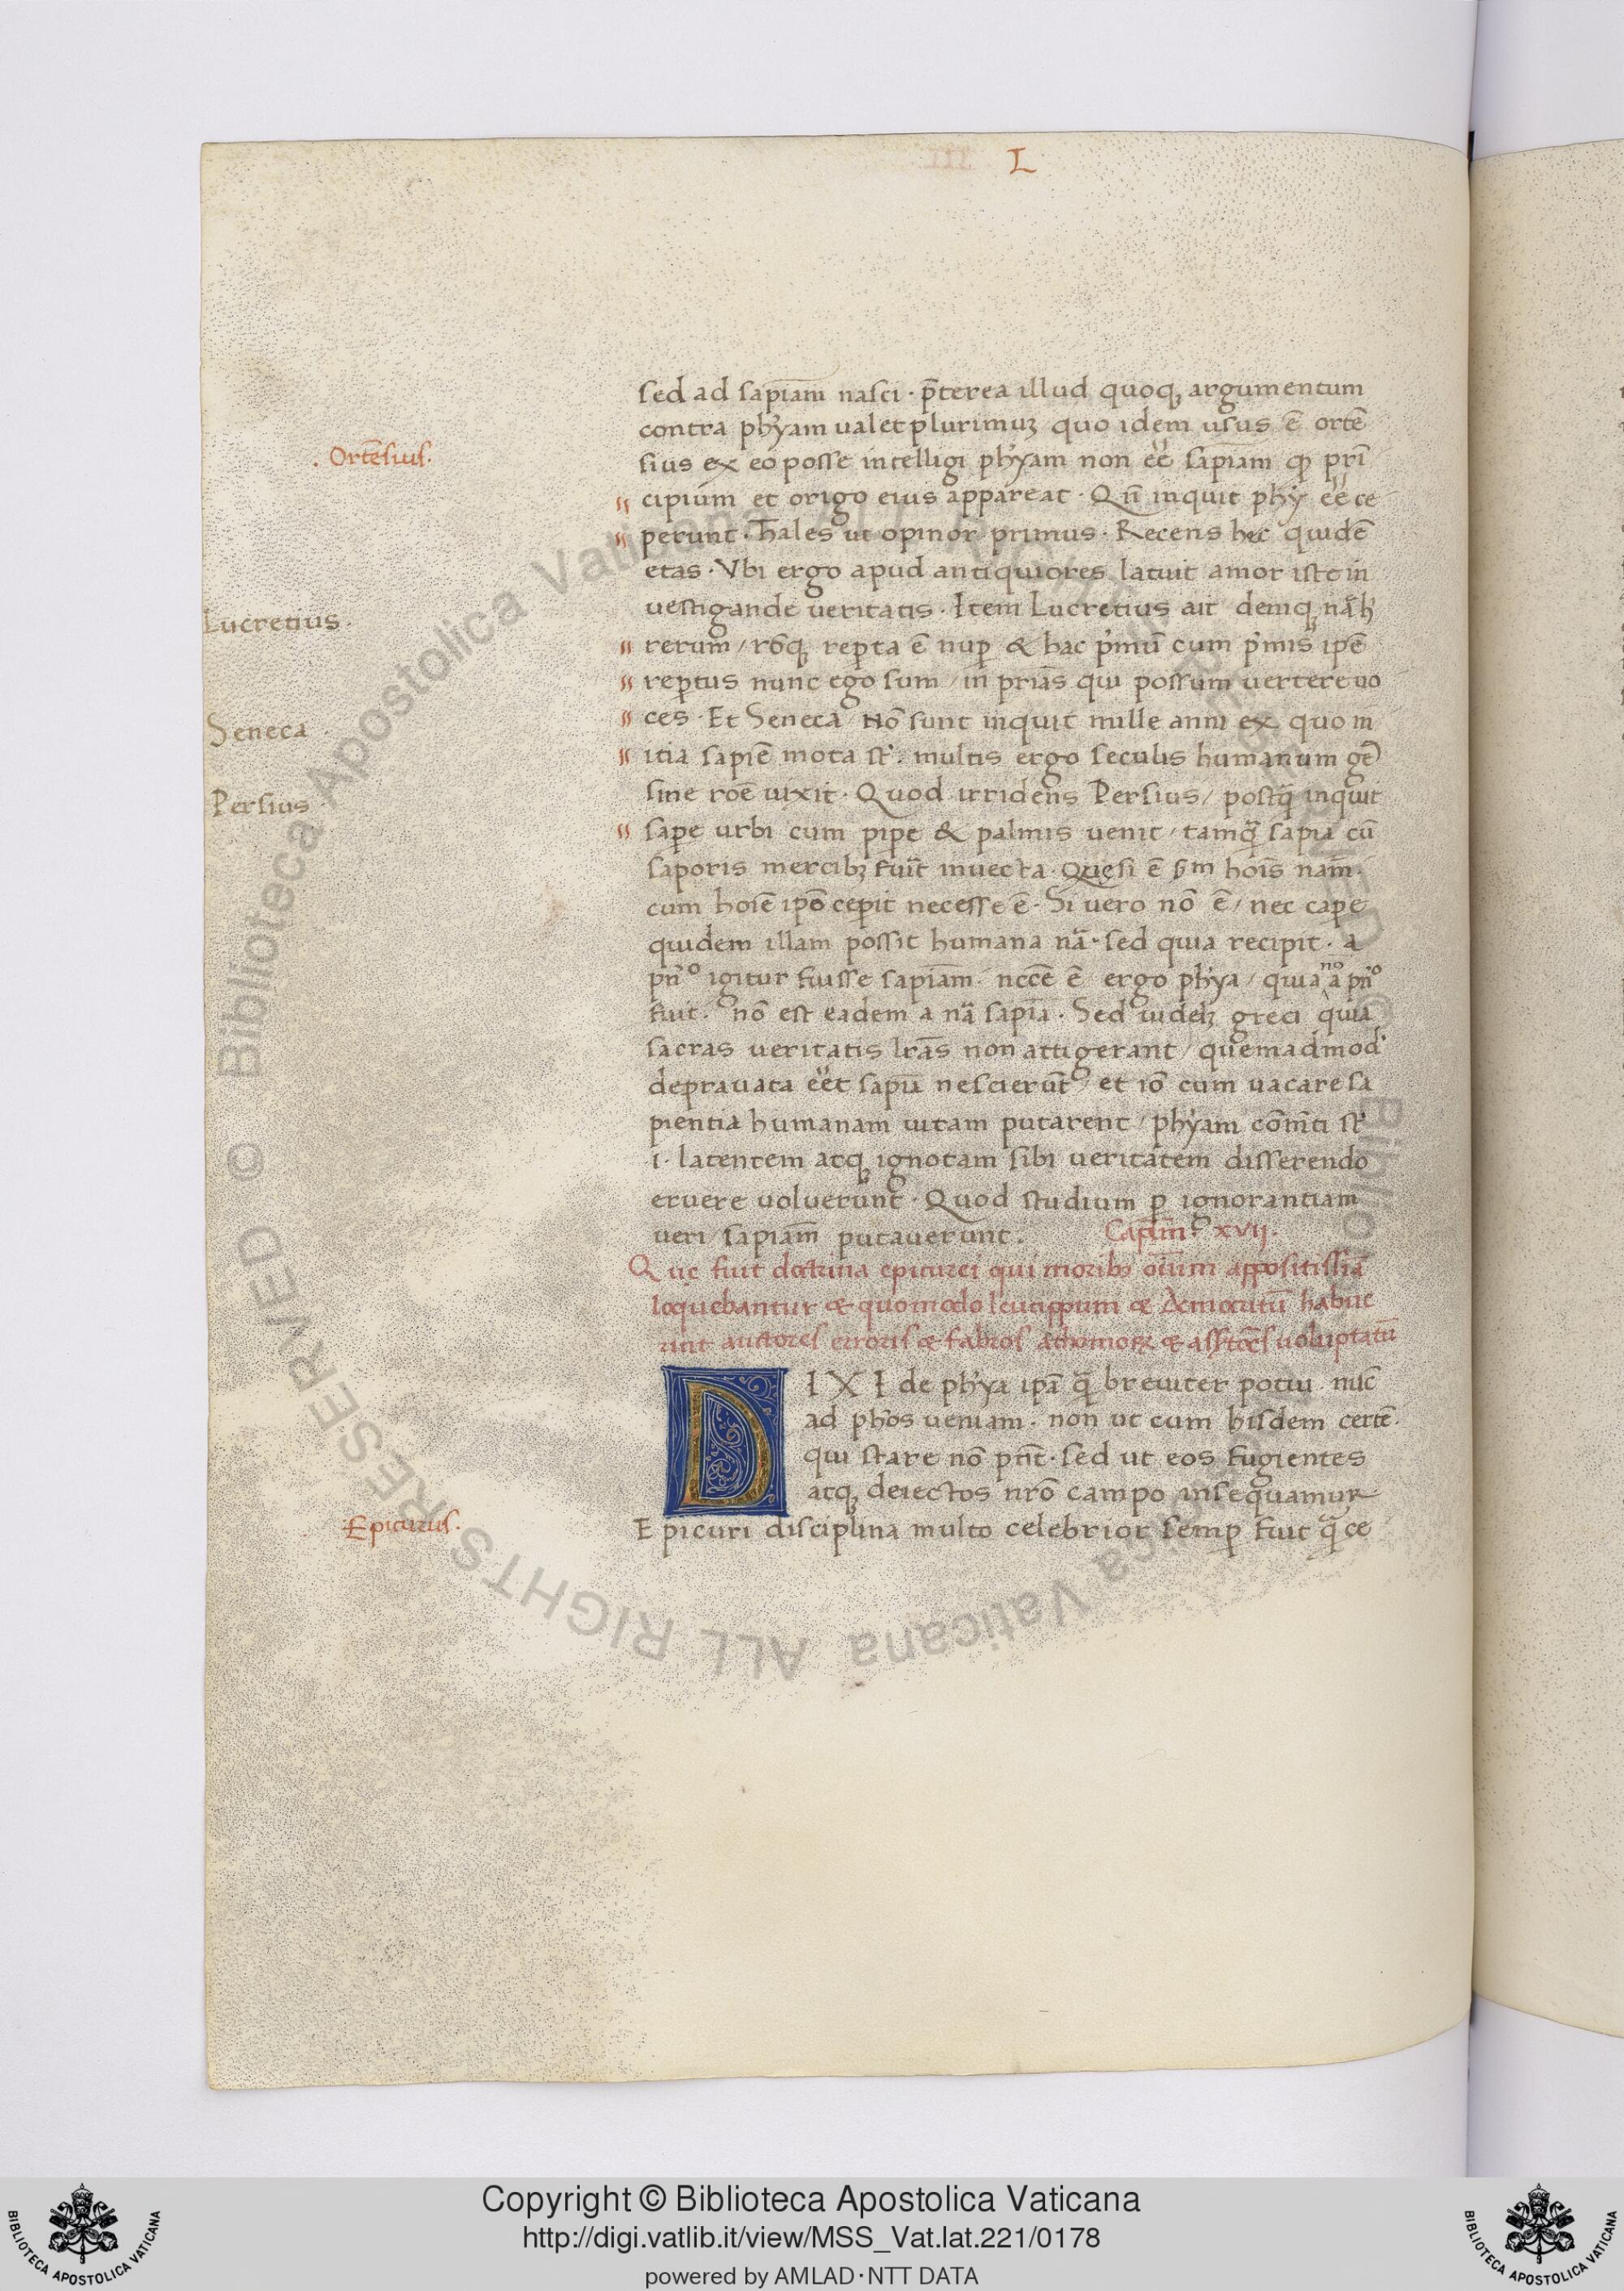 L
sed ad sapīam nasci · p̄terea illud quoqꝫ argumentum
contra phỹam ualet plurimuꝫ quo idem usus ē ortē
· Ortēsius ·
sius ex eo posse intelligi phỹam non eē̄ sapīam qꝫ prī
cipium et origo eius appareat · Qn̄ inquit phỹ eē̄ ce
perunt · Thales ut opinor primus · Recens hec quidē
etas · Vbi ergo apud antiquiores latuit amor iste in
uestigande ueritatis · Item Lucretius ait deniqꝫ nā h̾
Lucretius ·
rerum / rōqꝫ rep̱ta ē nup̱ & hac p̾mū cum p̾mis ipē
rep̱tus nunc ego sum / in prīas qui possum uertere uo
ces · Et Seneca / Nō sunt inquit mille anni ex quo in
Seneca ·
itia sapīē mota st̾ · multis ergo seculis humanum gē̄
sine rōē uixit · Quod irridens Persius / postq̄ inquit
Persius ·
sape urbi cum pipe & palmis uenit / tamq̄ sapīa cū
saporis mercibꝫ fuīt inuecta · Que si ē s̄m hoīs nām ·
cum hoīe ip̄o cepit necesse ē · Si uero nō ē / nec cape
quidem illam possit humana nā · sed quia recipit · a
pn̄º igitur fuisse sapīam · necc̄e ē ergo phỹa / quia nº a pn̄º
fuit · nō est eadem a nā sapīa · Sed uidelꝫ greci quia
sacras ueritatis lrās non attigerant / quemadmod̾
deprauata eēt sapīa nescierūt / et iō cum uacare sa
pientia humanam uitam putarent / phỹam cōm̄ti st̾
· i · latentem atqꝫ ignotam sibi ueritatem disserendo
eruere uoluerunt · Quod studium p̱ ignorantiam
ueri / sapīam putauerunt · Capl̄m · xvij ·
Que fuit doctrina epicurei qui moribꝫ oīum appositissīa
loquebantur & quomodo leucippum & democritū habue
runt auctores erroris & fabros athomoꝝ & assrtōēs uoluptatū
DIXI de phỹa ipā q̄ breuiter potui · nūc
ad phōs ueniam · non ut cum hisdem certē ·
qui stare nō pn̄t · sed ut eos fugientes
atqꝫ deiectos nr̄o campo insequamur
· Epicurus ·
Epicuri disciplina multo celebrior semp̱ fuit q̄ ce
© Biblioteca Apostolica Vaticana ALL RIGHTS RESERVED
Copyright © Biblioteca Apostolica Vaticana
http://digi.vatlib.it/view/MSS_Vat.lat.221/0178
powered by AMLAD·NTT DATA
BIBLIOTECA APOSTOLICA VATICANA
BIBLIOTECA APOSTOLICA VATICANA